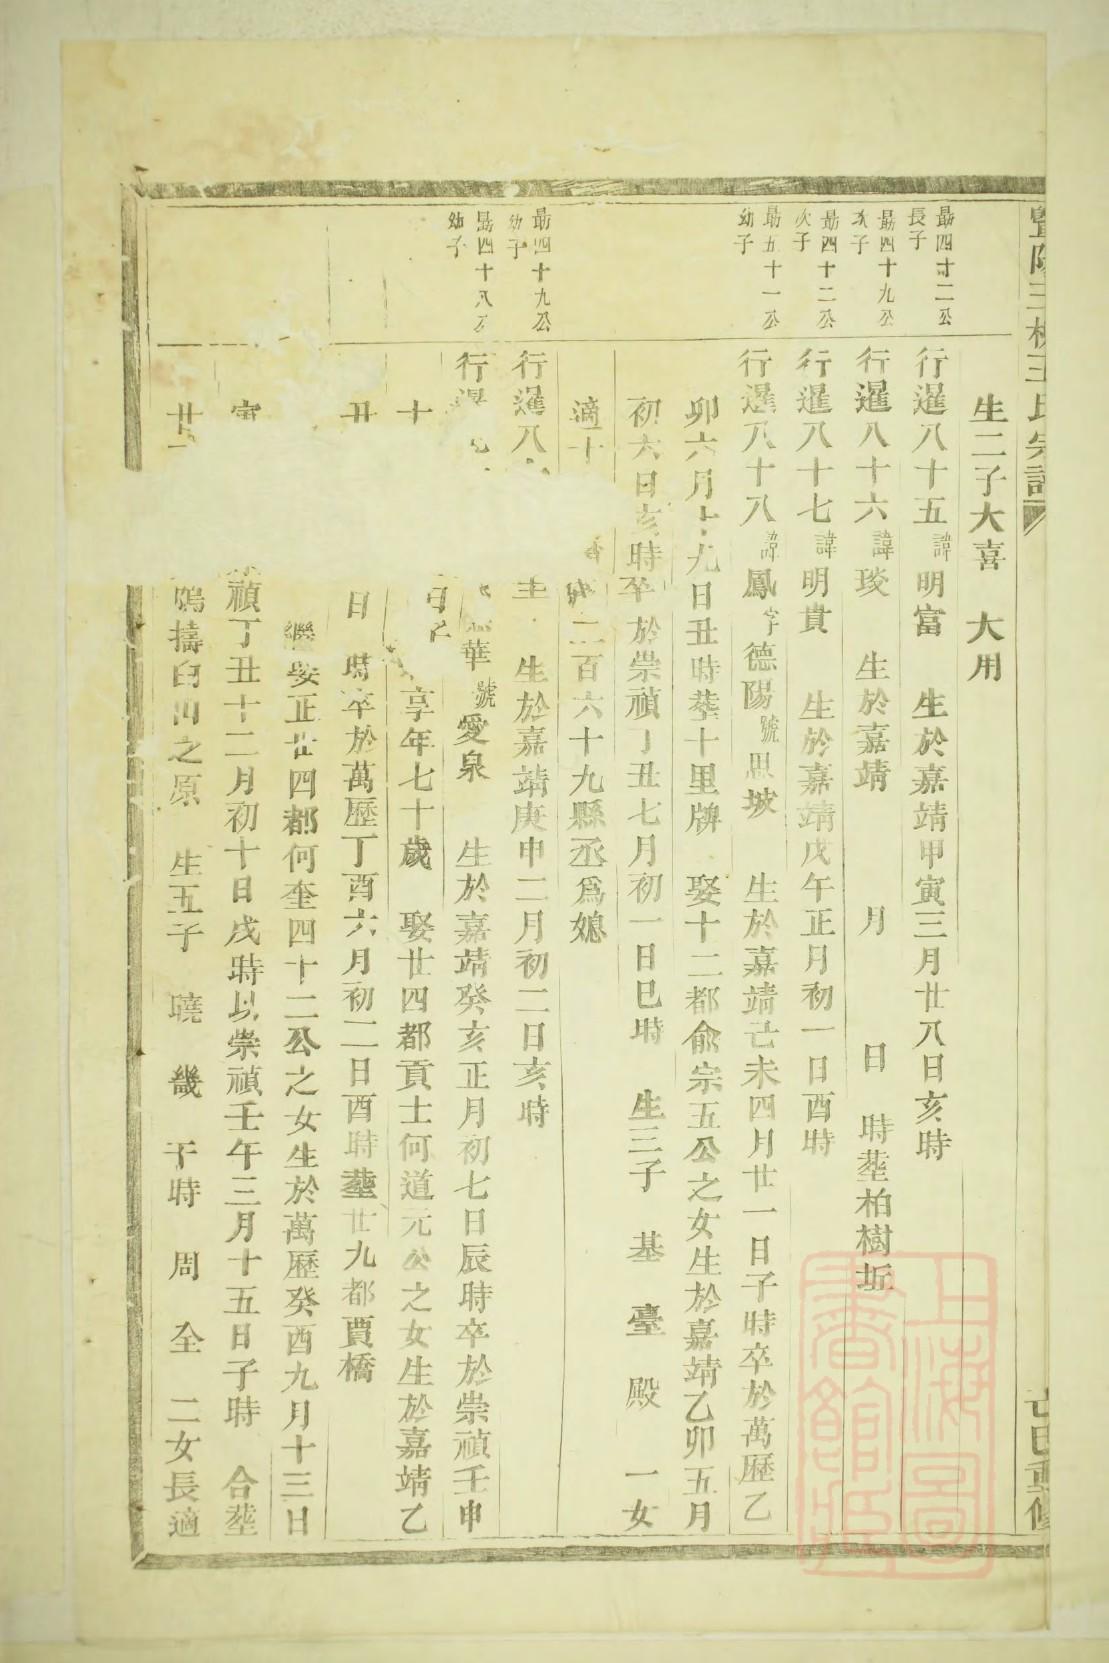 生二子大喜 大用
最四十二公長子
行暹八十五諱明富 生於嘉靖甲寅三月廿八日亥時
最四十九公次子
行暹八十六諱琰 生於嘉靖 月 日 時塟柏樹坵
最四十二公次子
行暹八十七諱明貴 生於嘉靖戊午正月初一日酉時
最五十一公幼子
行暹八十八諱鳳字德陽號思坡 生於嘉靖己未四月廿一日子時卒於萬歷乙
卯六月十九日丑時塟十里牌 娶十二都俞宗五公之女生於嘉靖乙卯五月
初六日亥時卒於崇禎丁丑七月初一日巳時 生三子 基 臺 殿 一女
適十 二百六十九縣丞爲媳
最四十九公幼子
行暹八 生於嘉靖庚申二月初二日亥時
最四十八公幼子
行暹 華號愛泉 生於嘉靖癸亥正月初七日辰時卒於崇禎壬申
十 享年七十歲 娶廿四都貢士何道元公之女生於嘉靖乙
丑 日 時卒於萬歷丁酉六月初二日酉時塟廿九都賈橋
繼娶正廿四都何奎四十二公之女生於萬歷癸酉九月十三日
寅 禎丁丑十二月初十日戌時以崇禎壬午三月十五日子時 合塟
廿 鵶擣臼山之原 生五子 曉 畿 干時 周 全 二女長適
上海圖書館藏